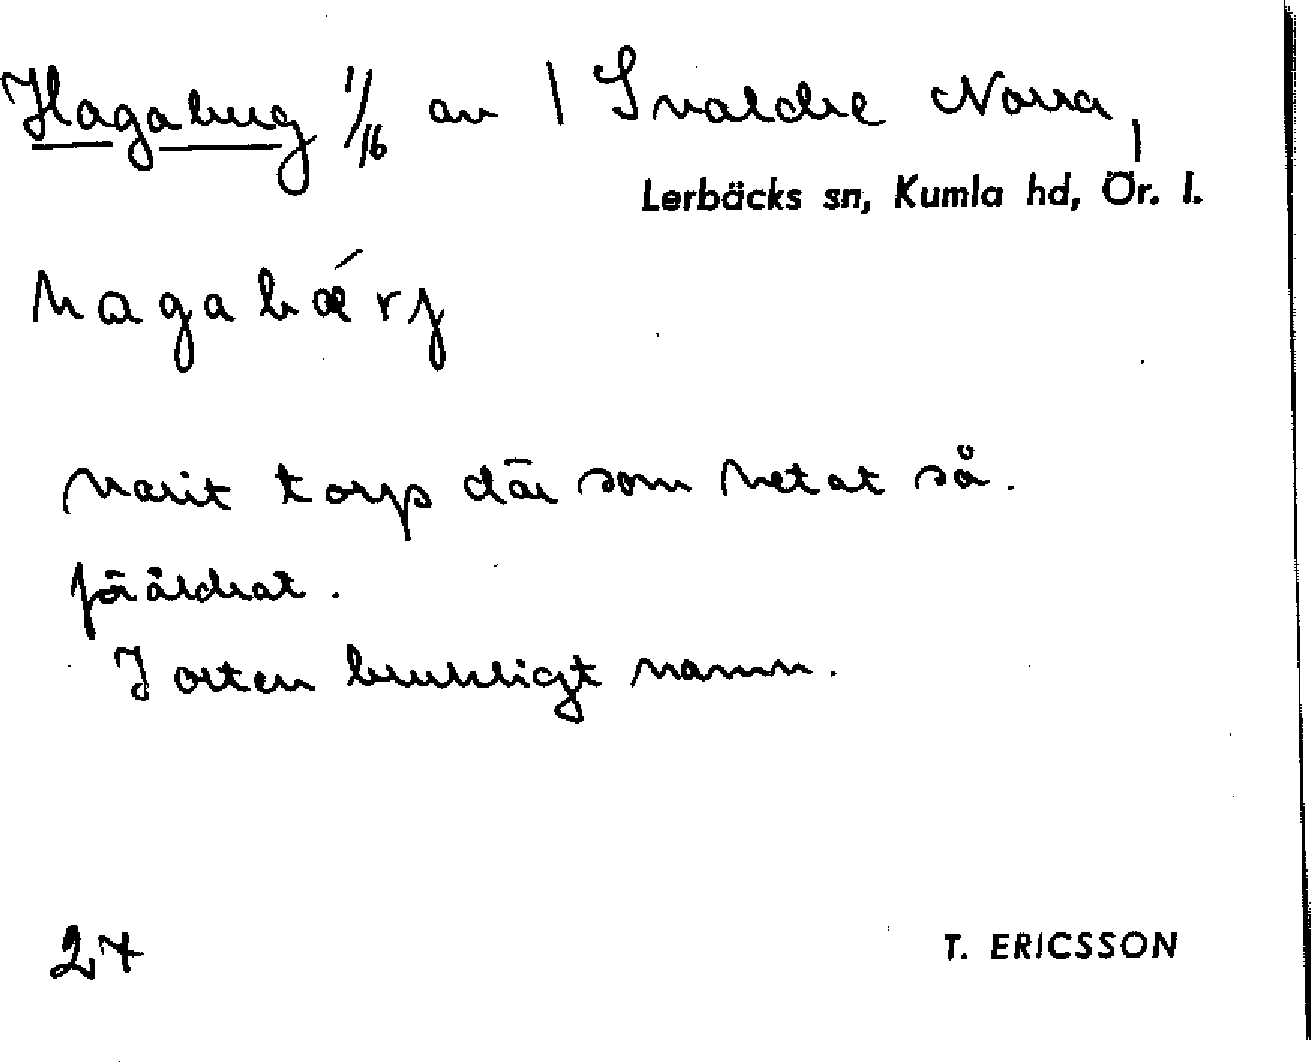 Hagaberg 1/16 av 1 Svaldre Norra,
Lerbäcks sn, Kumla hd, Ör. l.
hagabǽrj
Varit torp där som hetat så.
föråldrat.
I orten brukligt namn.
27
T. ERICSSON